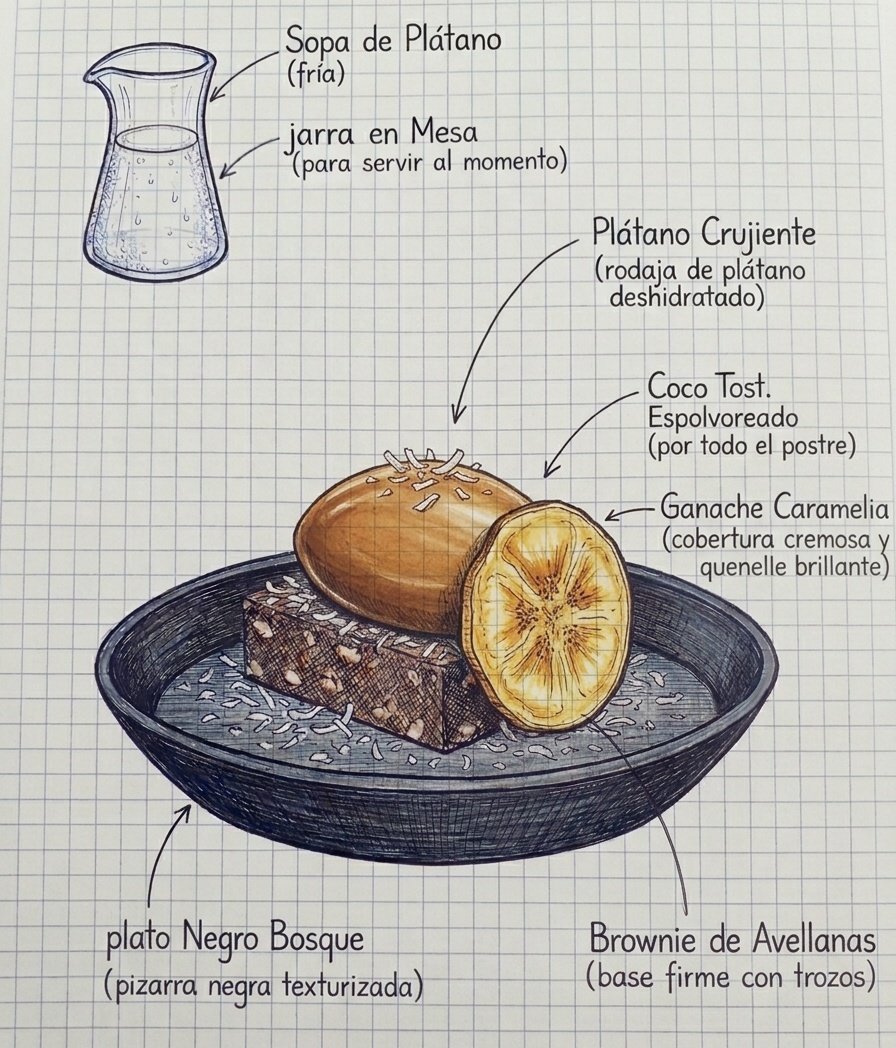 Sopa de Plátano
(fría)
jarra en Mesa
(para servir al momento)
Plátano Crujiente
(rodaja de plátano
deshidratado)
Coco Tost.
Espolvoreado
(por todo el postre)
Ganache Caramelia
(cobertura cremosa y
quenelle brillante)
plato Negro Bosque
(pizarra negra texturizada)
Brownie de Avellanas
(base firme con trozos)